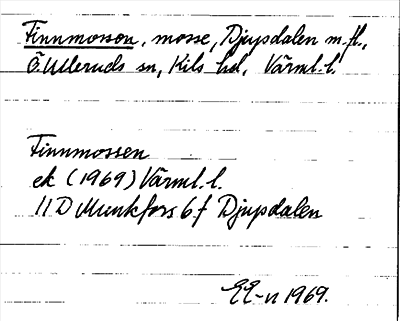 Finnmossen, mosse, Djupsdalen m.fl.,
Ö. Ulleruds sn, Kils hd, Värml. l.
Finnmossen
ek (1969) Värml. l.
11 D Munkfors 6 f Djupdalen
EE-n 1969.